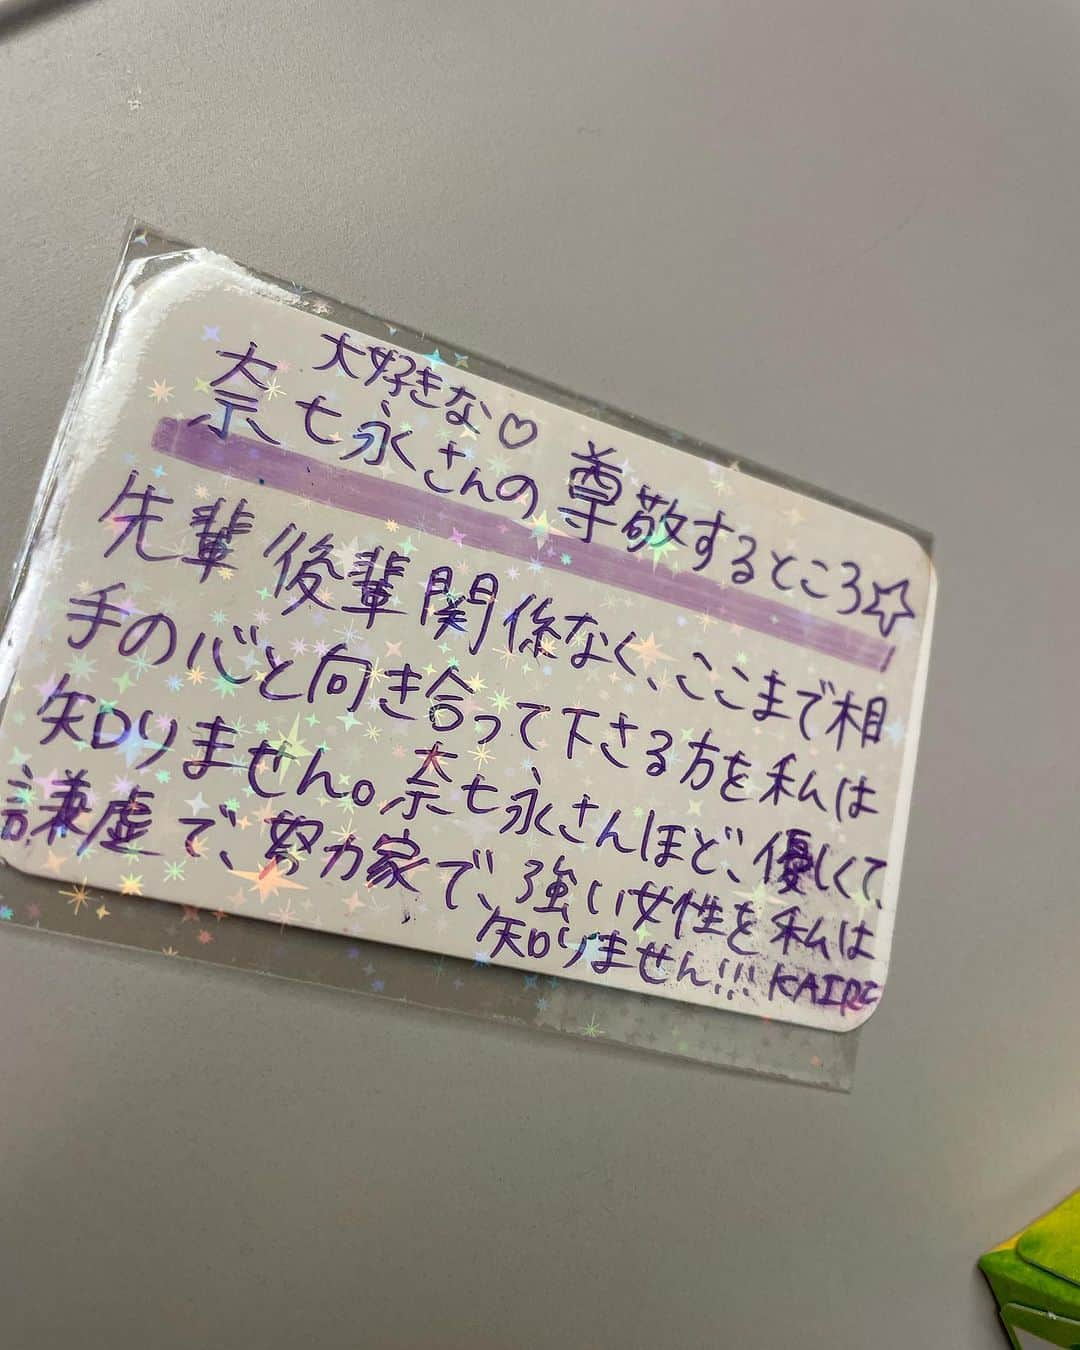 大好きな♡
奈七永さんの尊敬するところ☆
先輩後輩関係なく、ここまで相
手の心と向き合って下さる方を私は
知りません。奈七永さんほど、優しくて、
謙虚で、努力家で、強い女性を私は
知りません!!! KAIRI